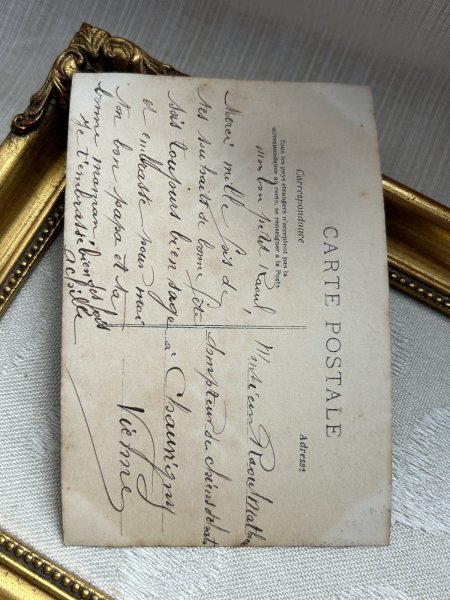 CARTE POSTALE
Correspondance
Tous les pays étrangers n'acceptent pas la
correspondance au recto, se renseigner à la Poste
Adresse
Mon bon petit Raoul,
Merci mille fois de
tes souhaits de bonne fête
sois toujours bien sage
et embrasse pour moi
ton bon papa et ta
bonne maman,
Je t'embrasse bien des fois
Achille
Monsieur Raoul
Dompteur de chiens
à Chauvigny
Vienne